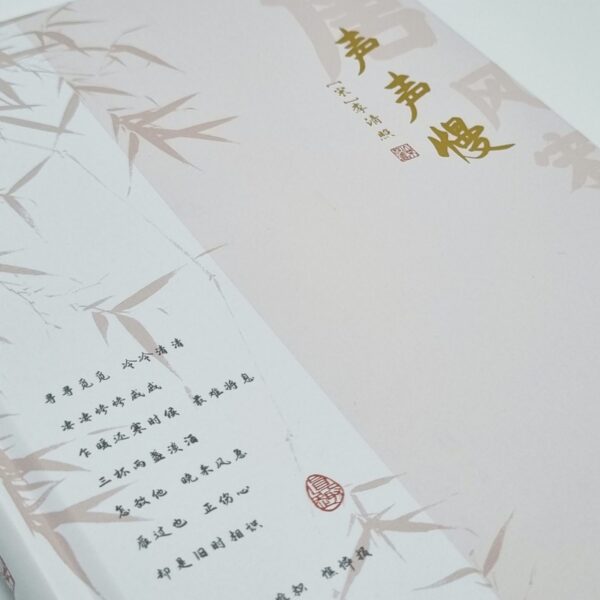 声声慢
[宋]李清照
唐风
寻寻觅觅 冷冷清清
凄凄惨惨戚戚
乍暖还寒时候 最难将息
三杯两盏淡酒
怎敌他 晚来风急
雁过也 正伤心
却是旧时相识
积 憔悴损